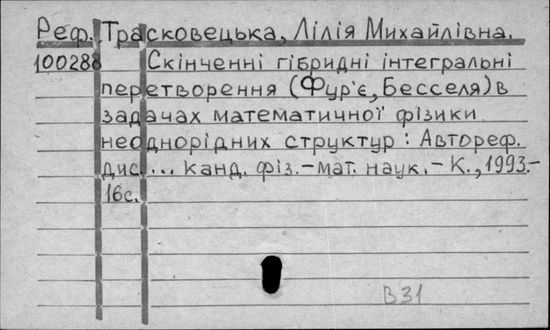 Реф. Трасковецька, Лілія Михайлівна.
100288 Скінченні гібридні інтегральні
перетворення (Фур'є, Бесселя) в
задачах математичної фізики
неоднорідних структур : Автореф.
дис. ... канд. физ.-мат. наук. - К., 1993.-
16с.
В31